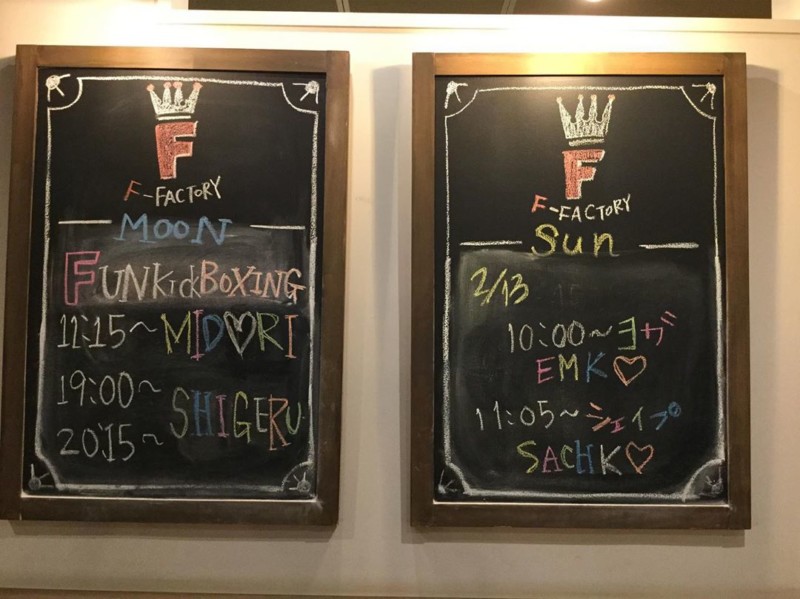 F
F-FACTORY
MOON
FUNKickBOXING
11:15~ MID♡RI
19:00~
20:15~ SHIGERU
F
F-FACTORY
Sun
2/13
10:00~ヨガ
EMK♡
11:05~シェイプ
SACHK♡